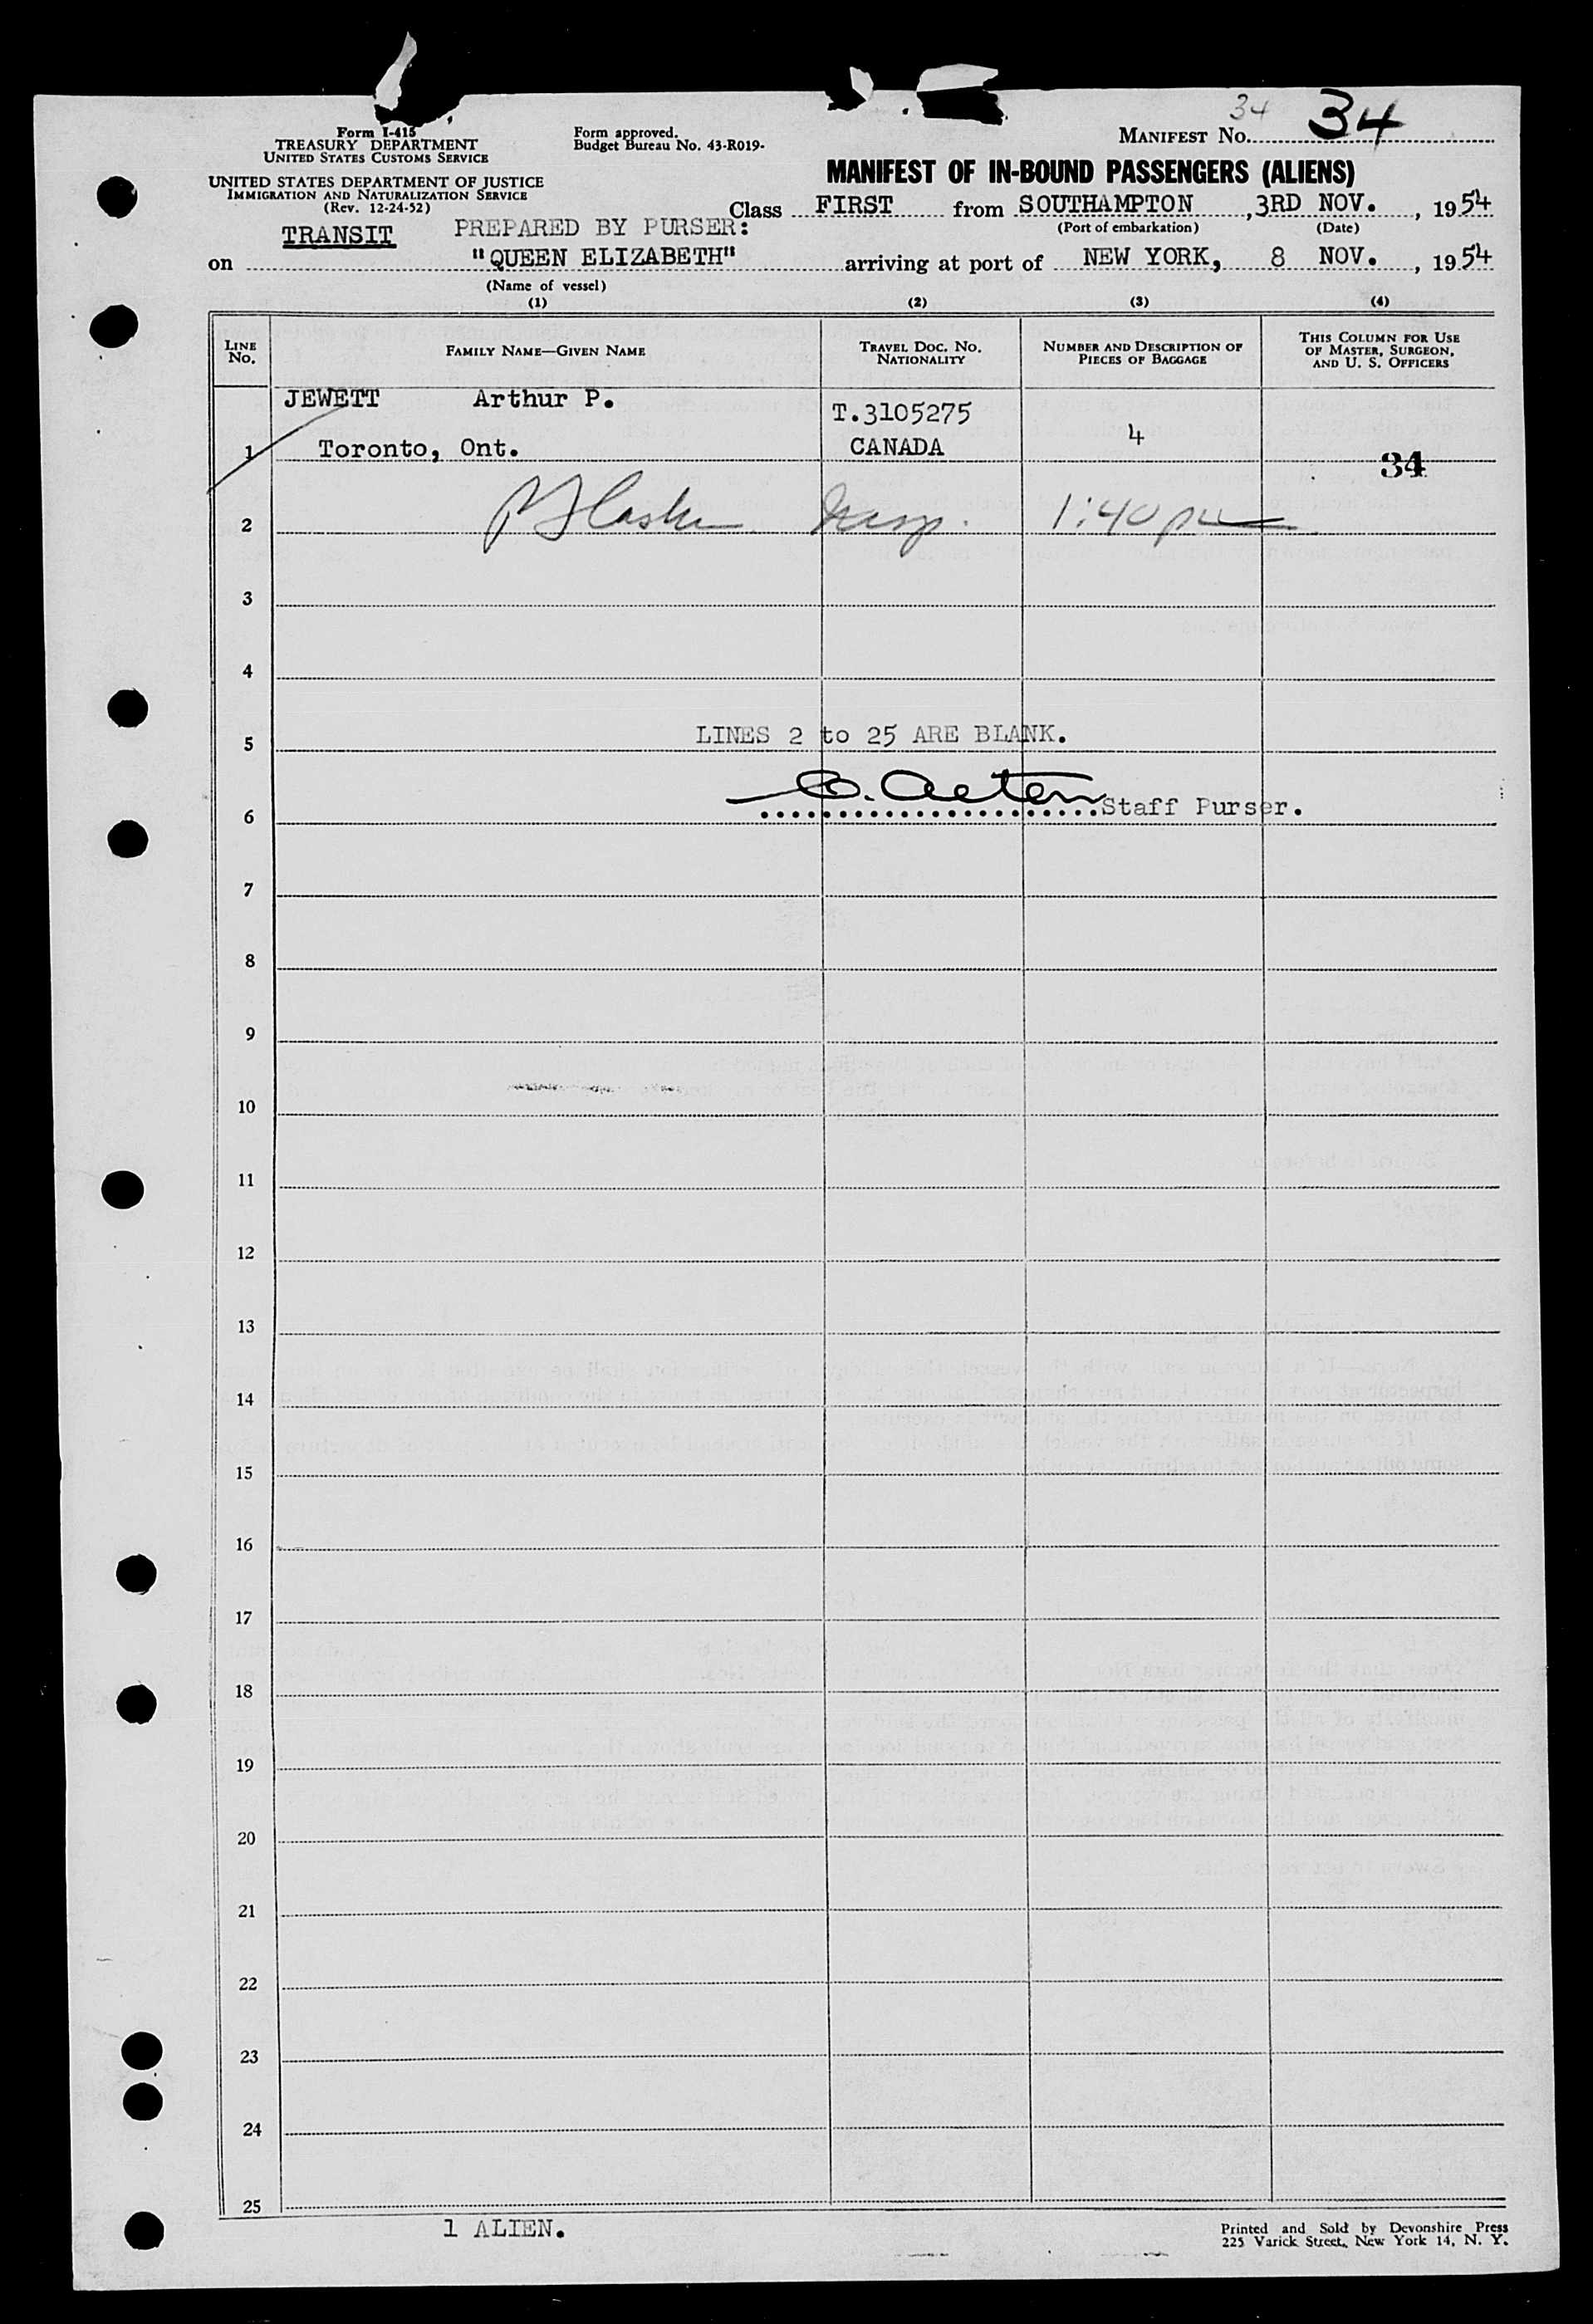 34
MANIFEST No. 34
Form I-415
TREASURY DEPARTMENT
UNITED STATES CUSTOMS SERVICE
Form approved.
Budget Bureau No. 43-R019-
UNITED STATES DEPARTMENT OF JUSTICE
IMMIGRATION AND NATURALIZATION SERVICE
(Rev. 12-24-52)
MANIFEST OF IN-BOUND PASSENGERS (ALIENS)
Class FIRST from SOUTHAMPTON, 3RD NOV., 1954
(Port of embarkation) (Date)
TRANSIT PREPARED BY PURSER:
on "QUEEN ELIZABETH" arriving at port of NEW YORK, 8 NOV., 1954
(Name of vessel)
(1) (2) (3) (4)
LINE No.
FAMILY NAME—GIVEN NAME
TRAVEL DOC. NO. NATIONALITY
NUMBER AND DESCRIPTION OF PIECES OF BAGGAGE
THIS COLUMN FOR USE OF MASTER, SURGEON, AND U. S. OFFICERS
JEWETT Arthur P. T.3105275
1 Toronto, Ont. CANADA 4 34
2 1:40 pm
3
4
5 LINES 2 to 25 ARE BLANK.
6 Staff Purser.
7
8
9
10
11
12
13
14
15
16
17
18
19
20
21
22
23
24
25
1 ALIEN.
Printed and Sold by Devonshire Press
225 Varick Street, New York 14, N. Y.